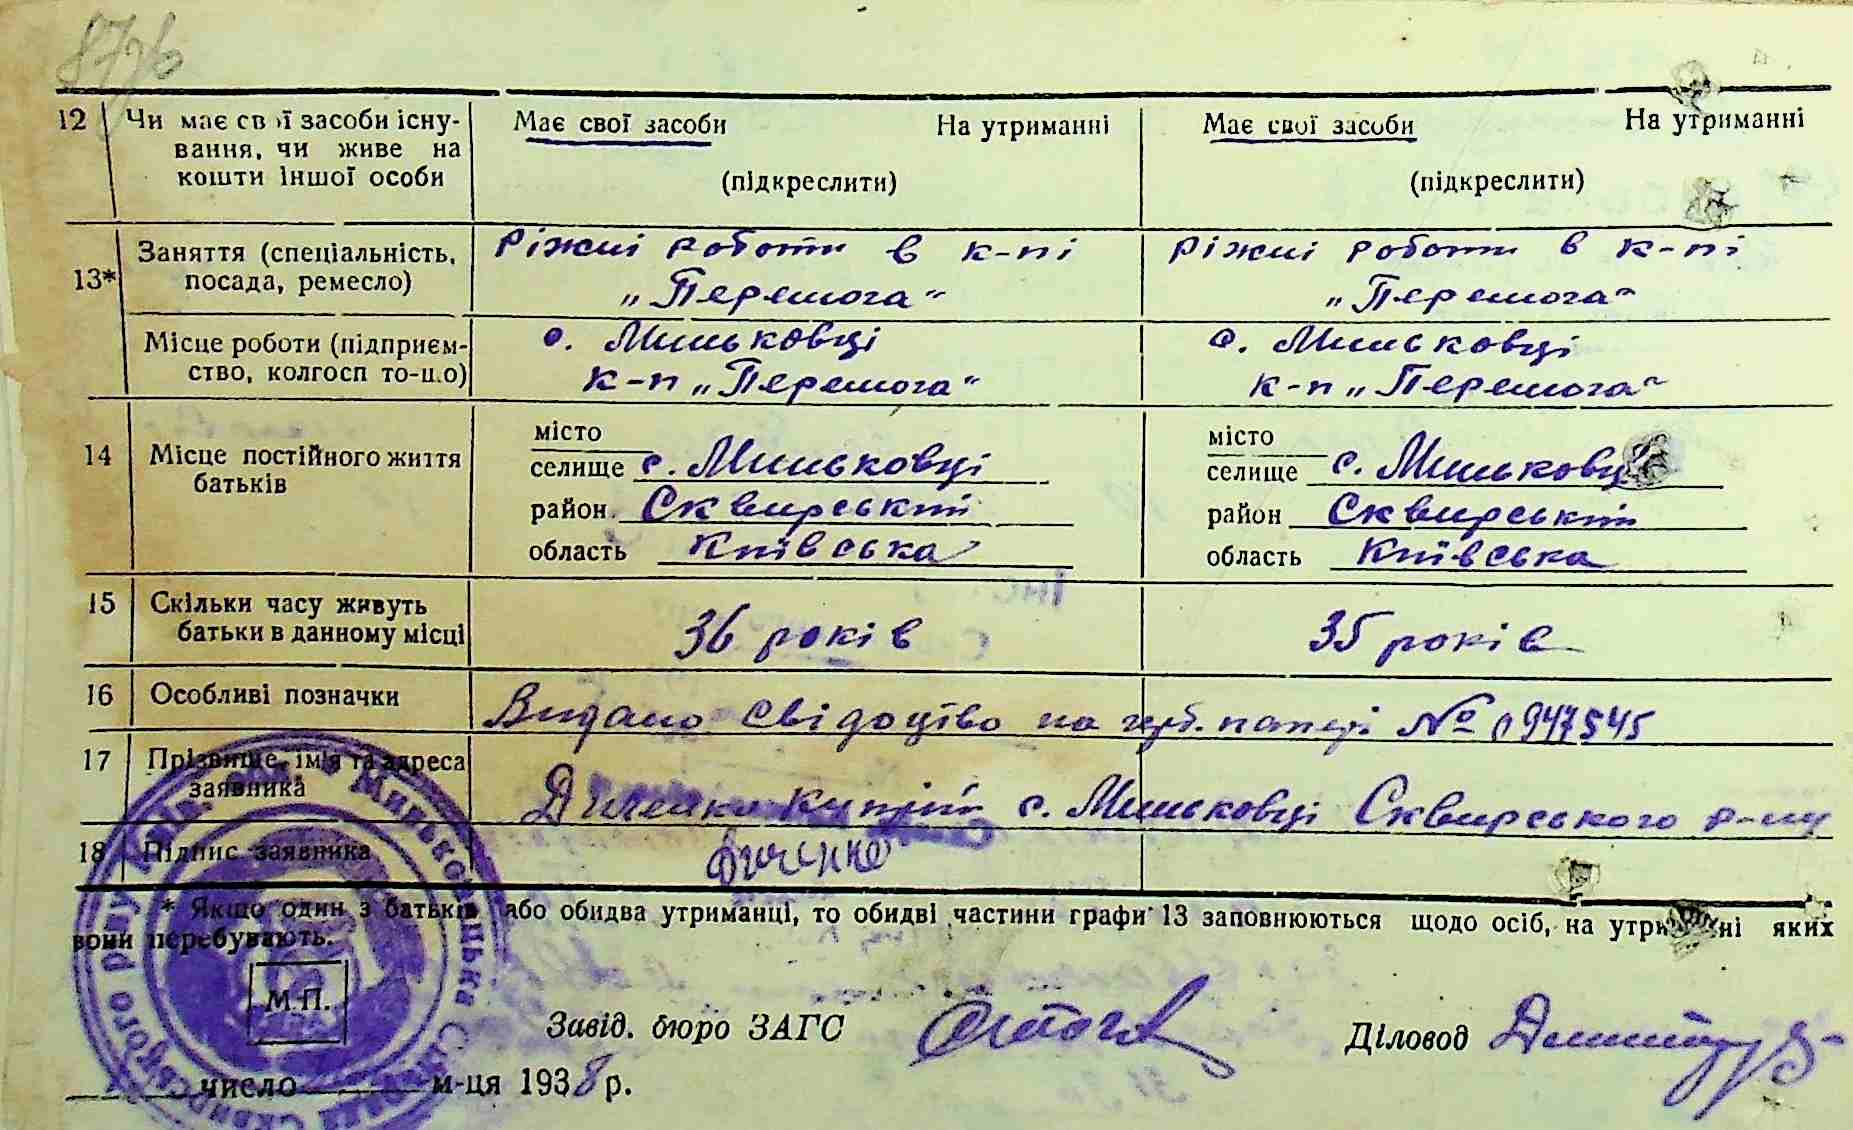 87зв
12 Чи має свої засоби існу- Має свої засоби На утриманні Має свої засоби На утриманні
вання, чи живе на
кошти іншої особи (підкреслити) (підкреслити)
13* Заняття (спеціальність, ріжні роботи в к-пі ріжні роботи в к-пі
посада, ремесло) „Перемога“ „Перемога“
Місце роботи (підприєм- с. Миньковці с. Миньковці
ство, колгосп то-що) к-п „Перемога“ к-п „Перемога“
14 Місце постійного життя місто місто
батьків селище с. Миньковці селище с. Миньковці
район Сквирський район Сквирський
область Київська область Київська
15 Скільки часу живуть 36 років 35 років
батьки в данному місці
16 Особливі позначки Видано свідоцтво на герб. папері № 0947545
17 Прізвище, ім'я та адреса
заявника Диченко Купрій с. Миньковці Сквирського р-ну
18 Підпис заявника Диченко
* Якщо один з батьків або обидва утриманці, то обидві частини графи 13 заповнюються щодо осіб, на утриманні яких
вони перебувають.
М.П.
Завід. бюро ЗАГС Діловод
число м-ця 1938 р.